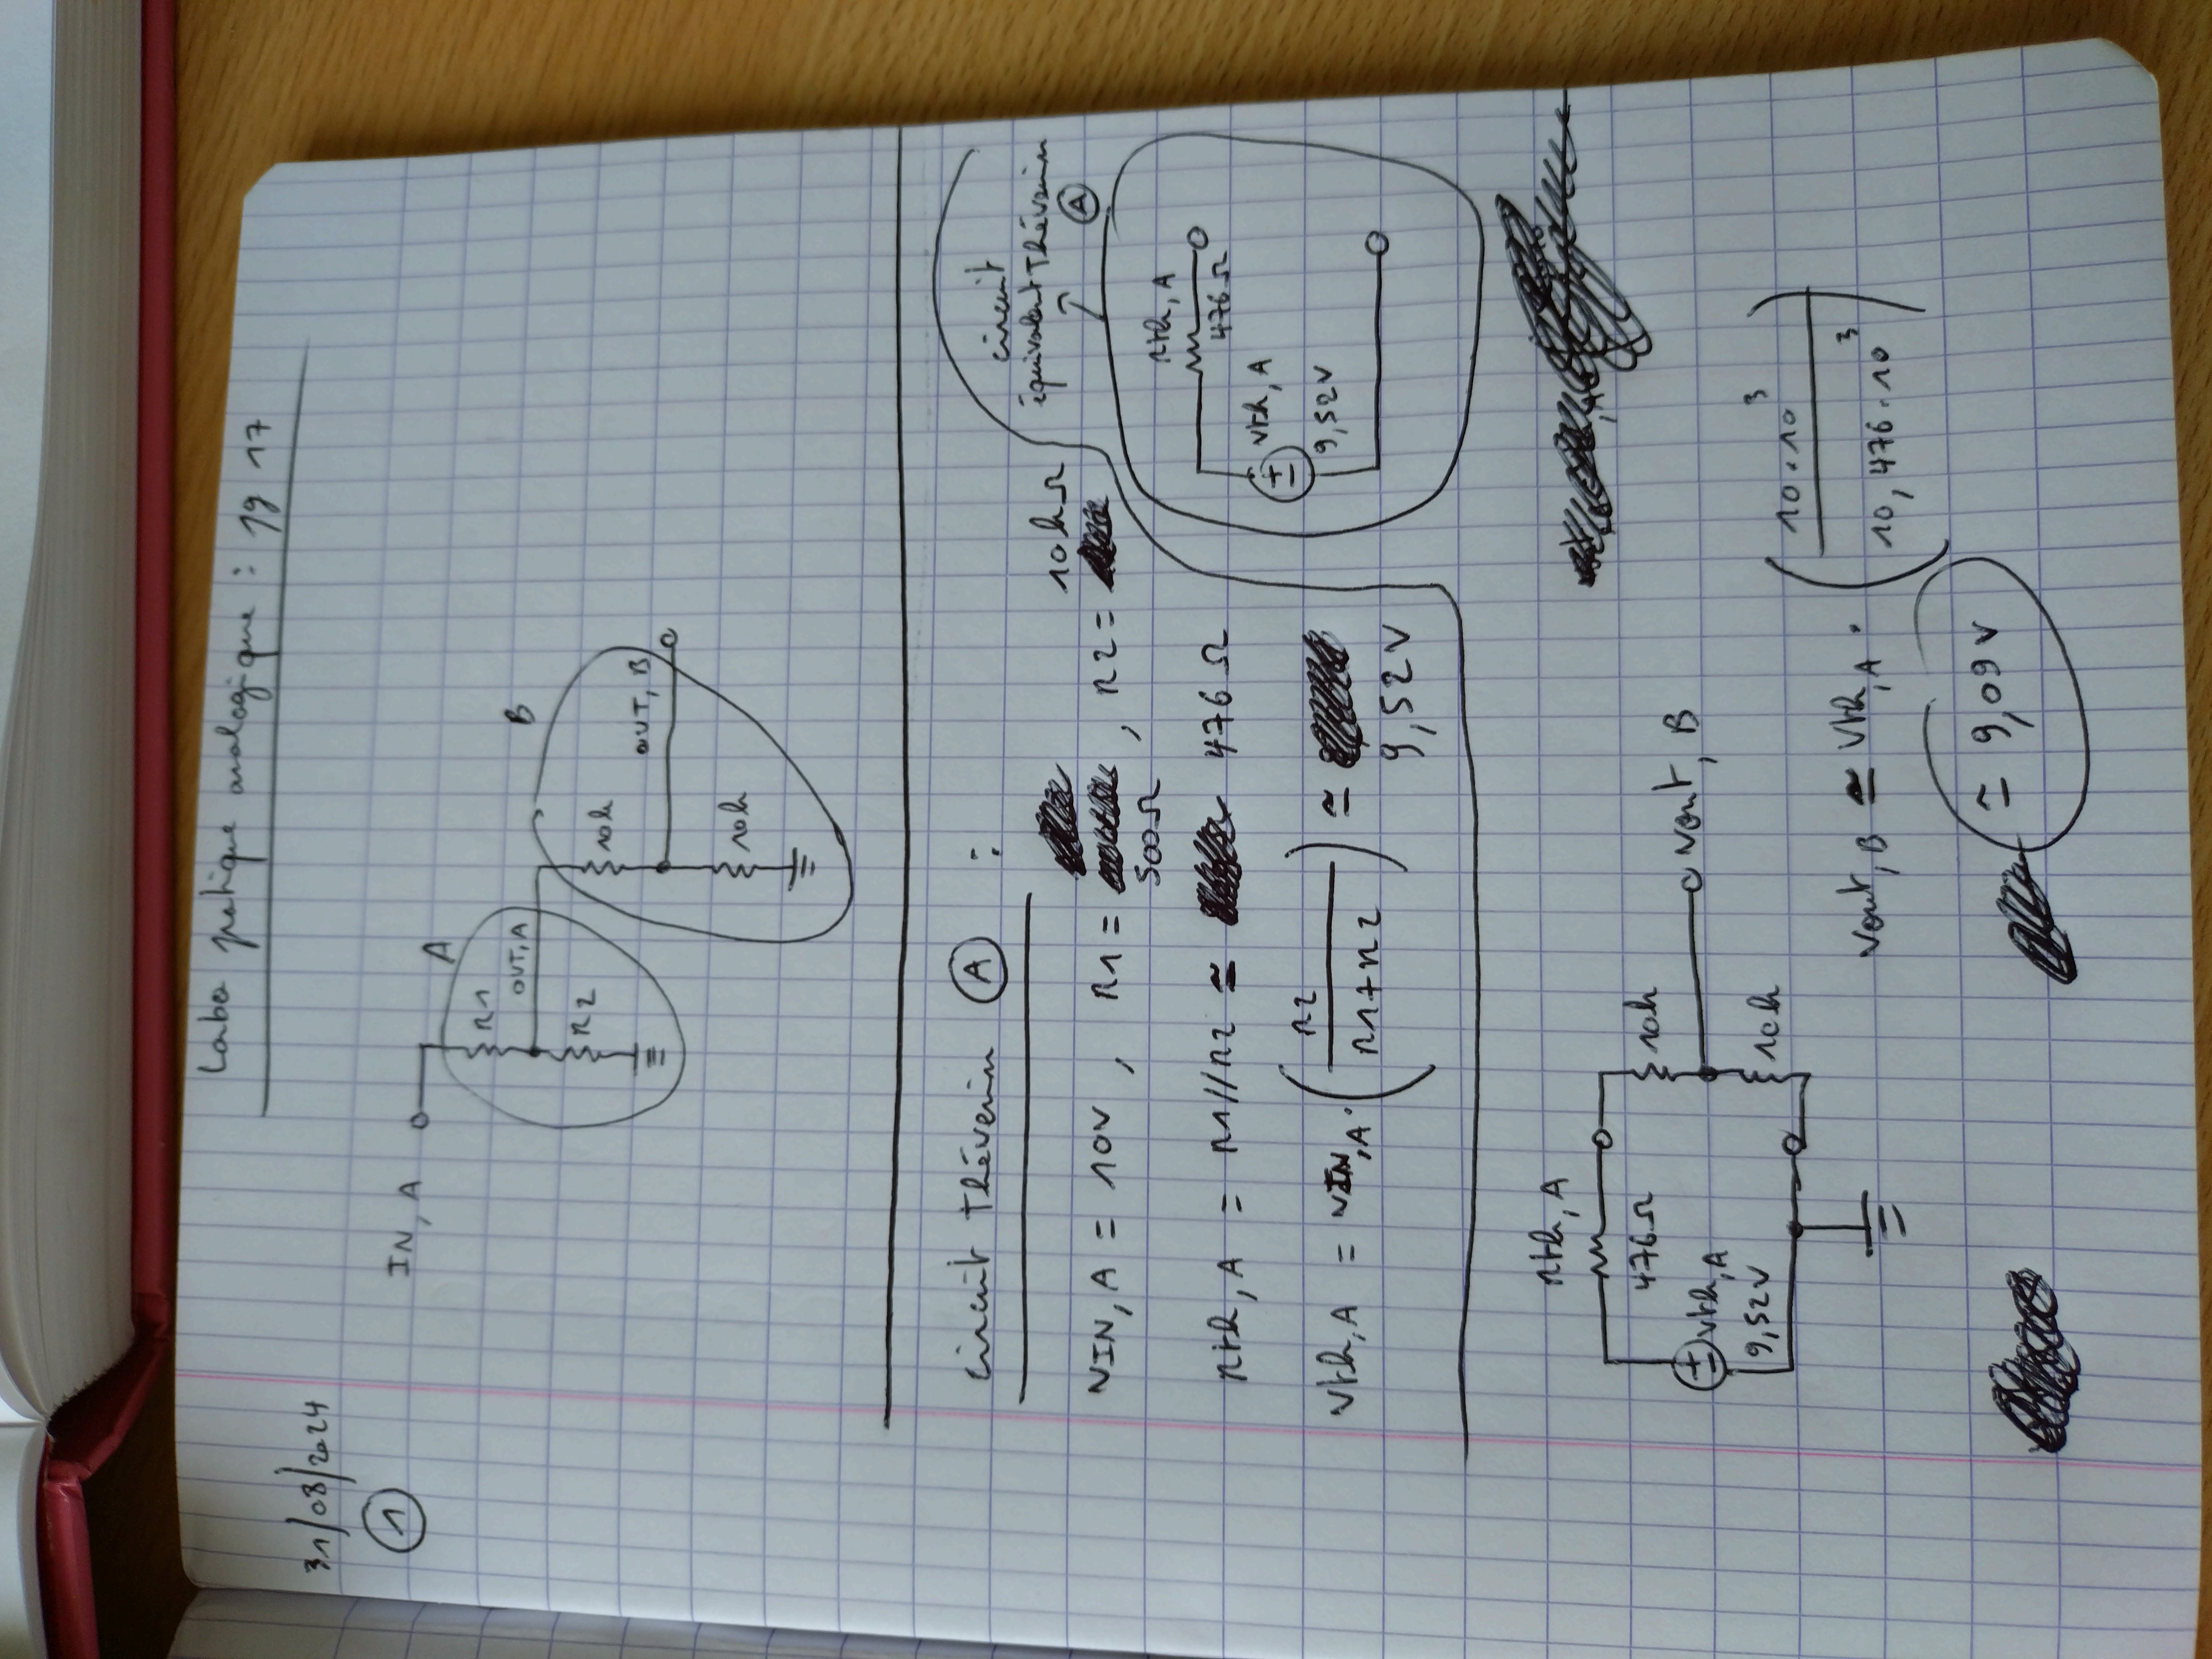 31/08/2024
Labo pratique analogique : pg 17
1
IN, A
A
R1
OUT, A
R2
B
10k
OUT, B
10k
circuit Thévenin A :
VIN, A = 10V , R1 = 500Ω , R2 = 10kΩ
Rth, A = R1//R2 ≃ 476Ω
Vth, A = VIN, A . (R2 / R1+R2) ≃ 9,52V
circuit
équivalent Thévenin
A
Rth, A
476Ω
Vth, A
9,52V
Rth, A
476Ω
Vth, A
9,52V
10k
Vout, B
10k
Vout, B ≃ Vth, A . (10.10³ / 10,476.10³)
≃ 9,09V